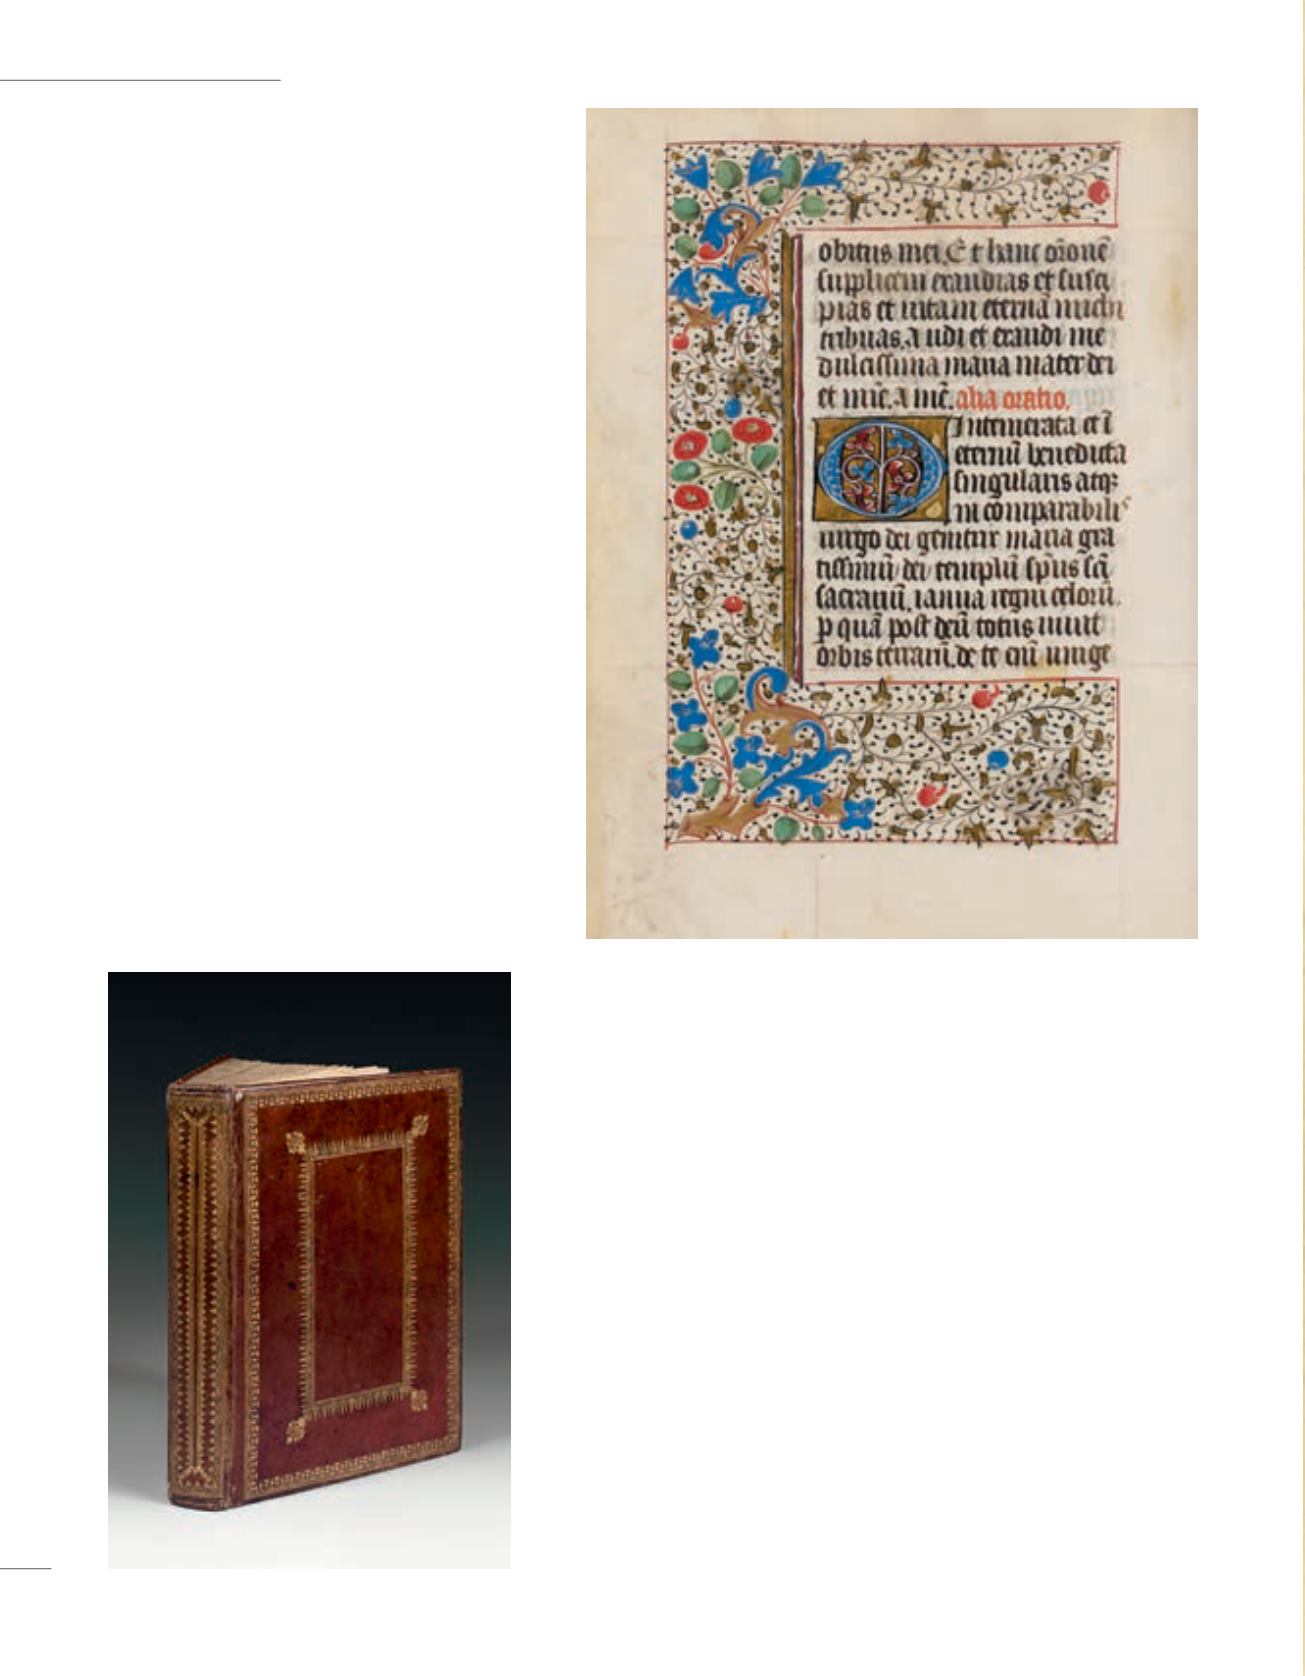 obitus mei. Et hanc orōnē
supplicem exaudias et susci
pias et vitam eternā michi
tribuas. Audi et exaudi me
dulcissima maria mater dei
et mīe. Amē. alia oratio.
O Intemerata et ī
eternū benedicta
singularis atqꝫ
incōparabilis
uirgo dei genitrix maria gra
tissimū dei templū spūs scī
sacrariū. ianua regni celorū.
p quā post deū totus uiuit
orbis terrarū. de te enī unige